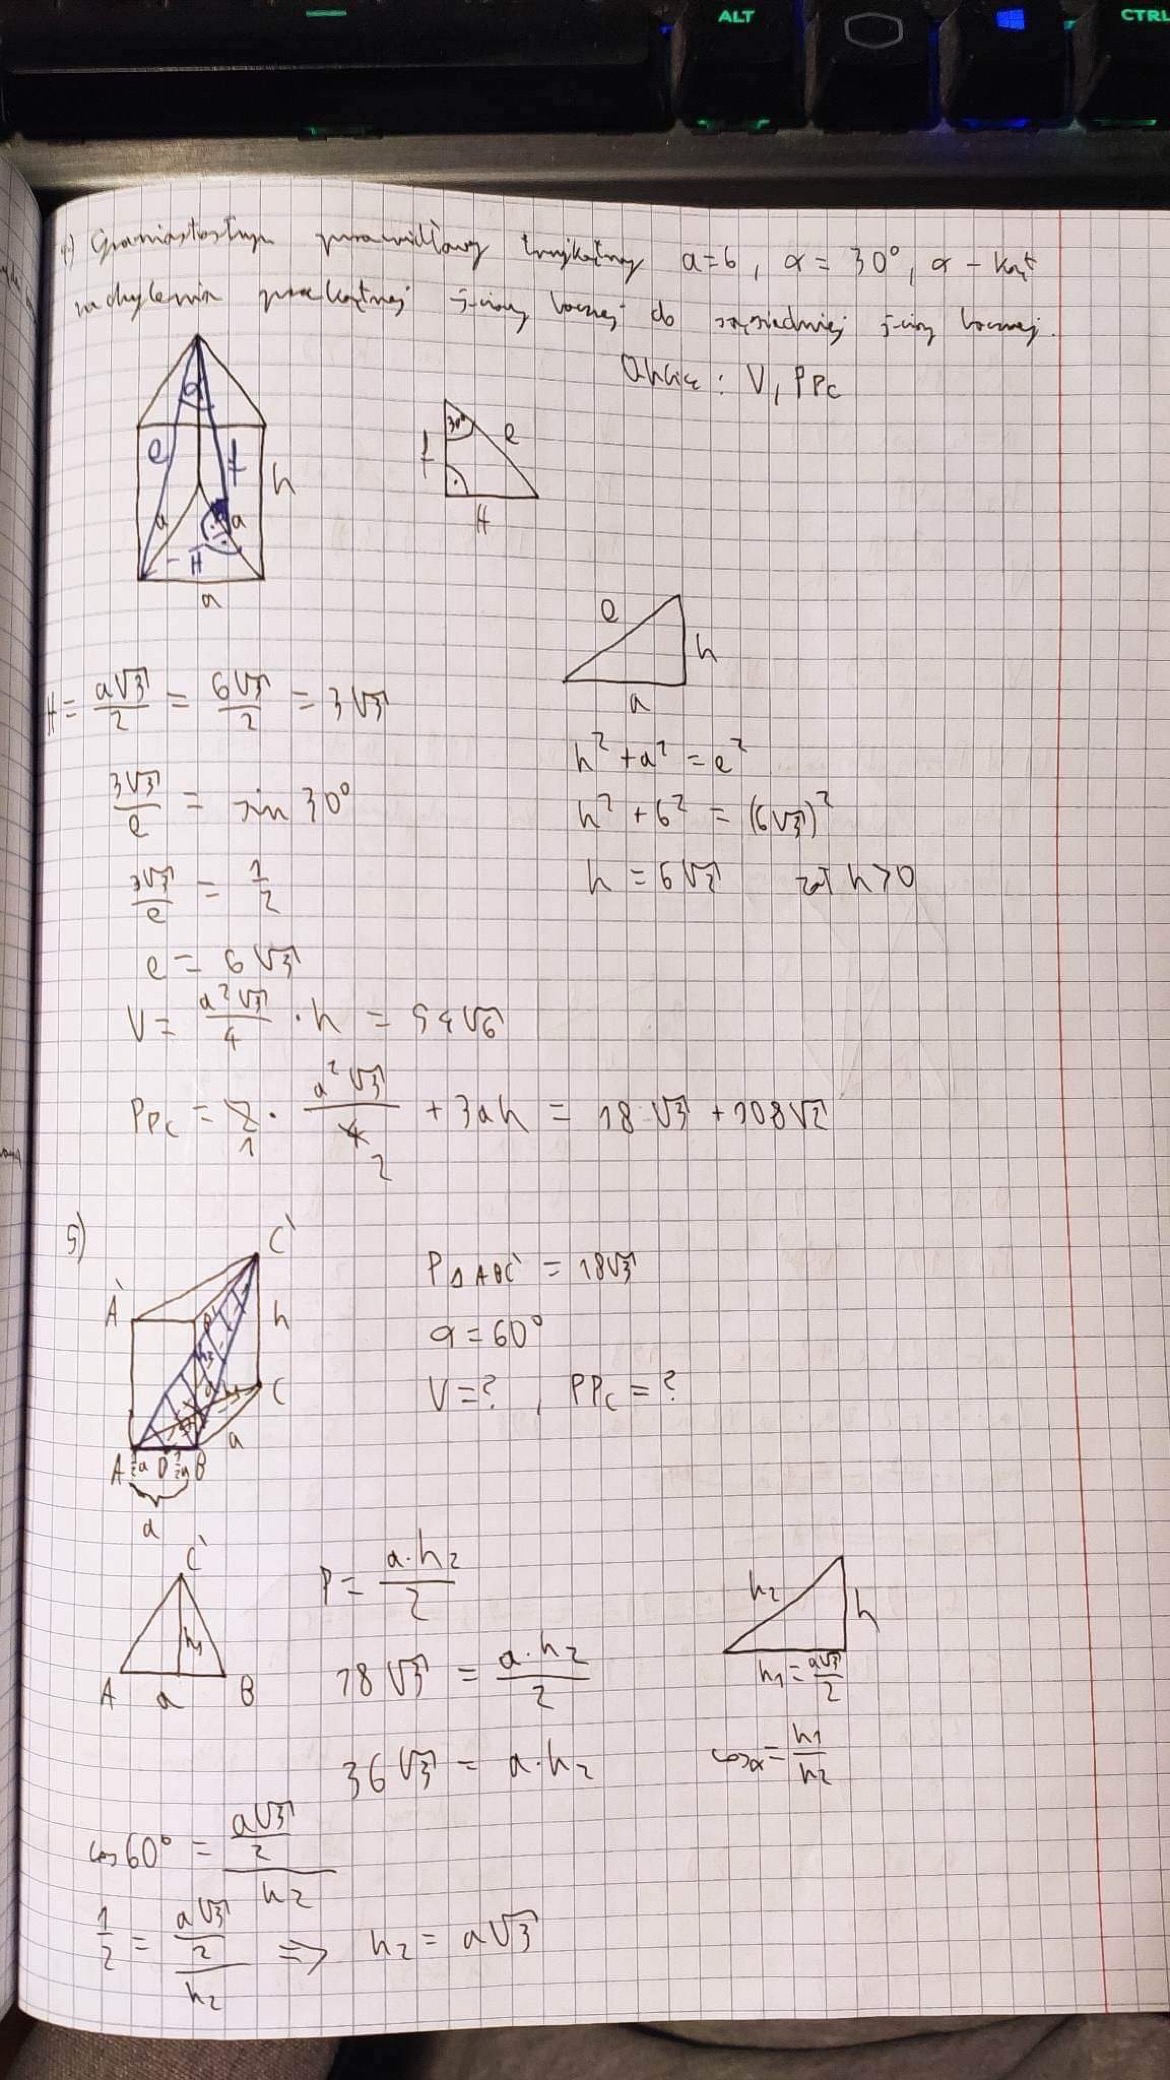 ALT
CTRL
4) Graniastosłup prawidłowy trójkątny a=6, α = 30°, α - kąt
nachylenia przekątnej ściany bocznej do sąsiedniej ściany bocznej.
Oblicz: V, PPc
α
e f h
a a
H
a
30° e
f
H
e
h
a
H = a√3/2 = 6√3/2 = 3√3
h² + a² = e²
3√3/e = sin 30°
h² + 6² = (6√3)²
3√3/e = 1/2
h = 6√2 bo h>0
e = 6√3
V = a²√3/4 · h = 54√6
PPc = 2 · a²√3/4 + 3ah = 18√3 + 108√2
1 2
5)
C'
A'
h
C
a
A ½a D ½a B
a
P△ABC' = 18√3
α = 60°
V=? , PPc = ?
C'
h₁
A a B
P = a·h₂/2
h₂
h
h₁ = a√3/2
18√3 = a·h₂/2
cosα = h₁/h₂
36√3 = a·h₂
cos60° = (a√3/2)/h₂
1/2 = (a√3/2)/h₂ => h₂ = a√3